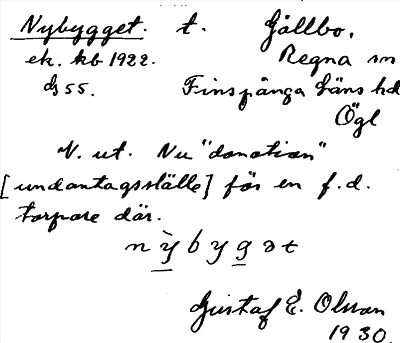 Nybygget. t. Gällbo.
ek. kb 1922. Regna sn
dg 55. Finspånga läns hd
Ögl
N. ut. Nu "donation"
[undantagsställe] för en f.d.
torpare där.
n ỳ b y g ə t
Gustaf E. Olsson
1930.